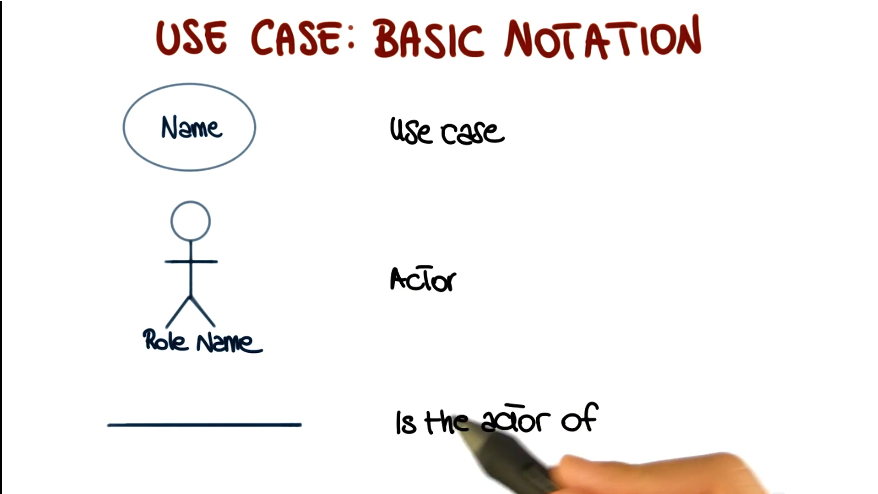 USE CASE: BASIC NOTATION
Name
Use case
Actor
Role Name
Is the actor of